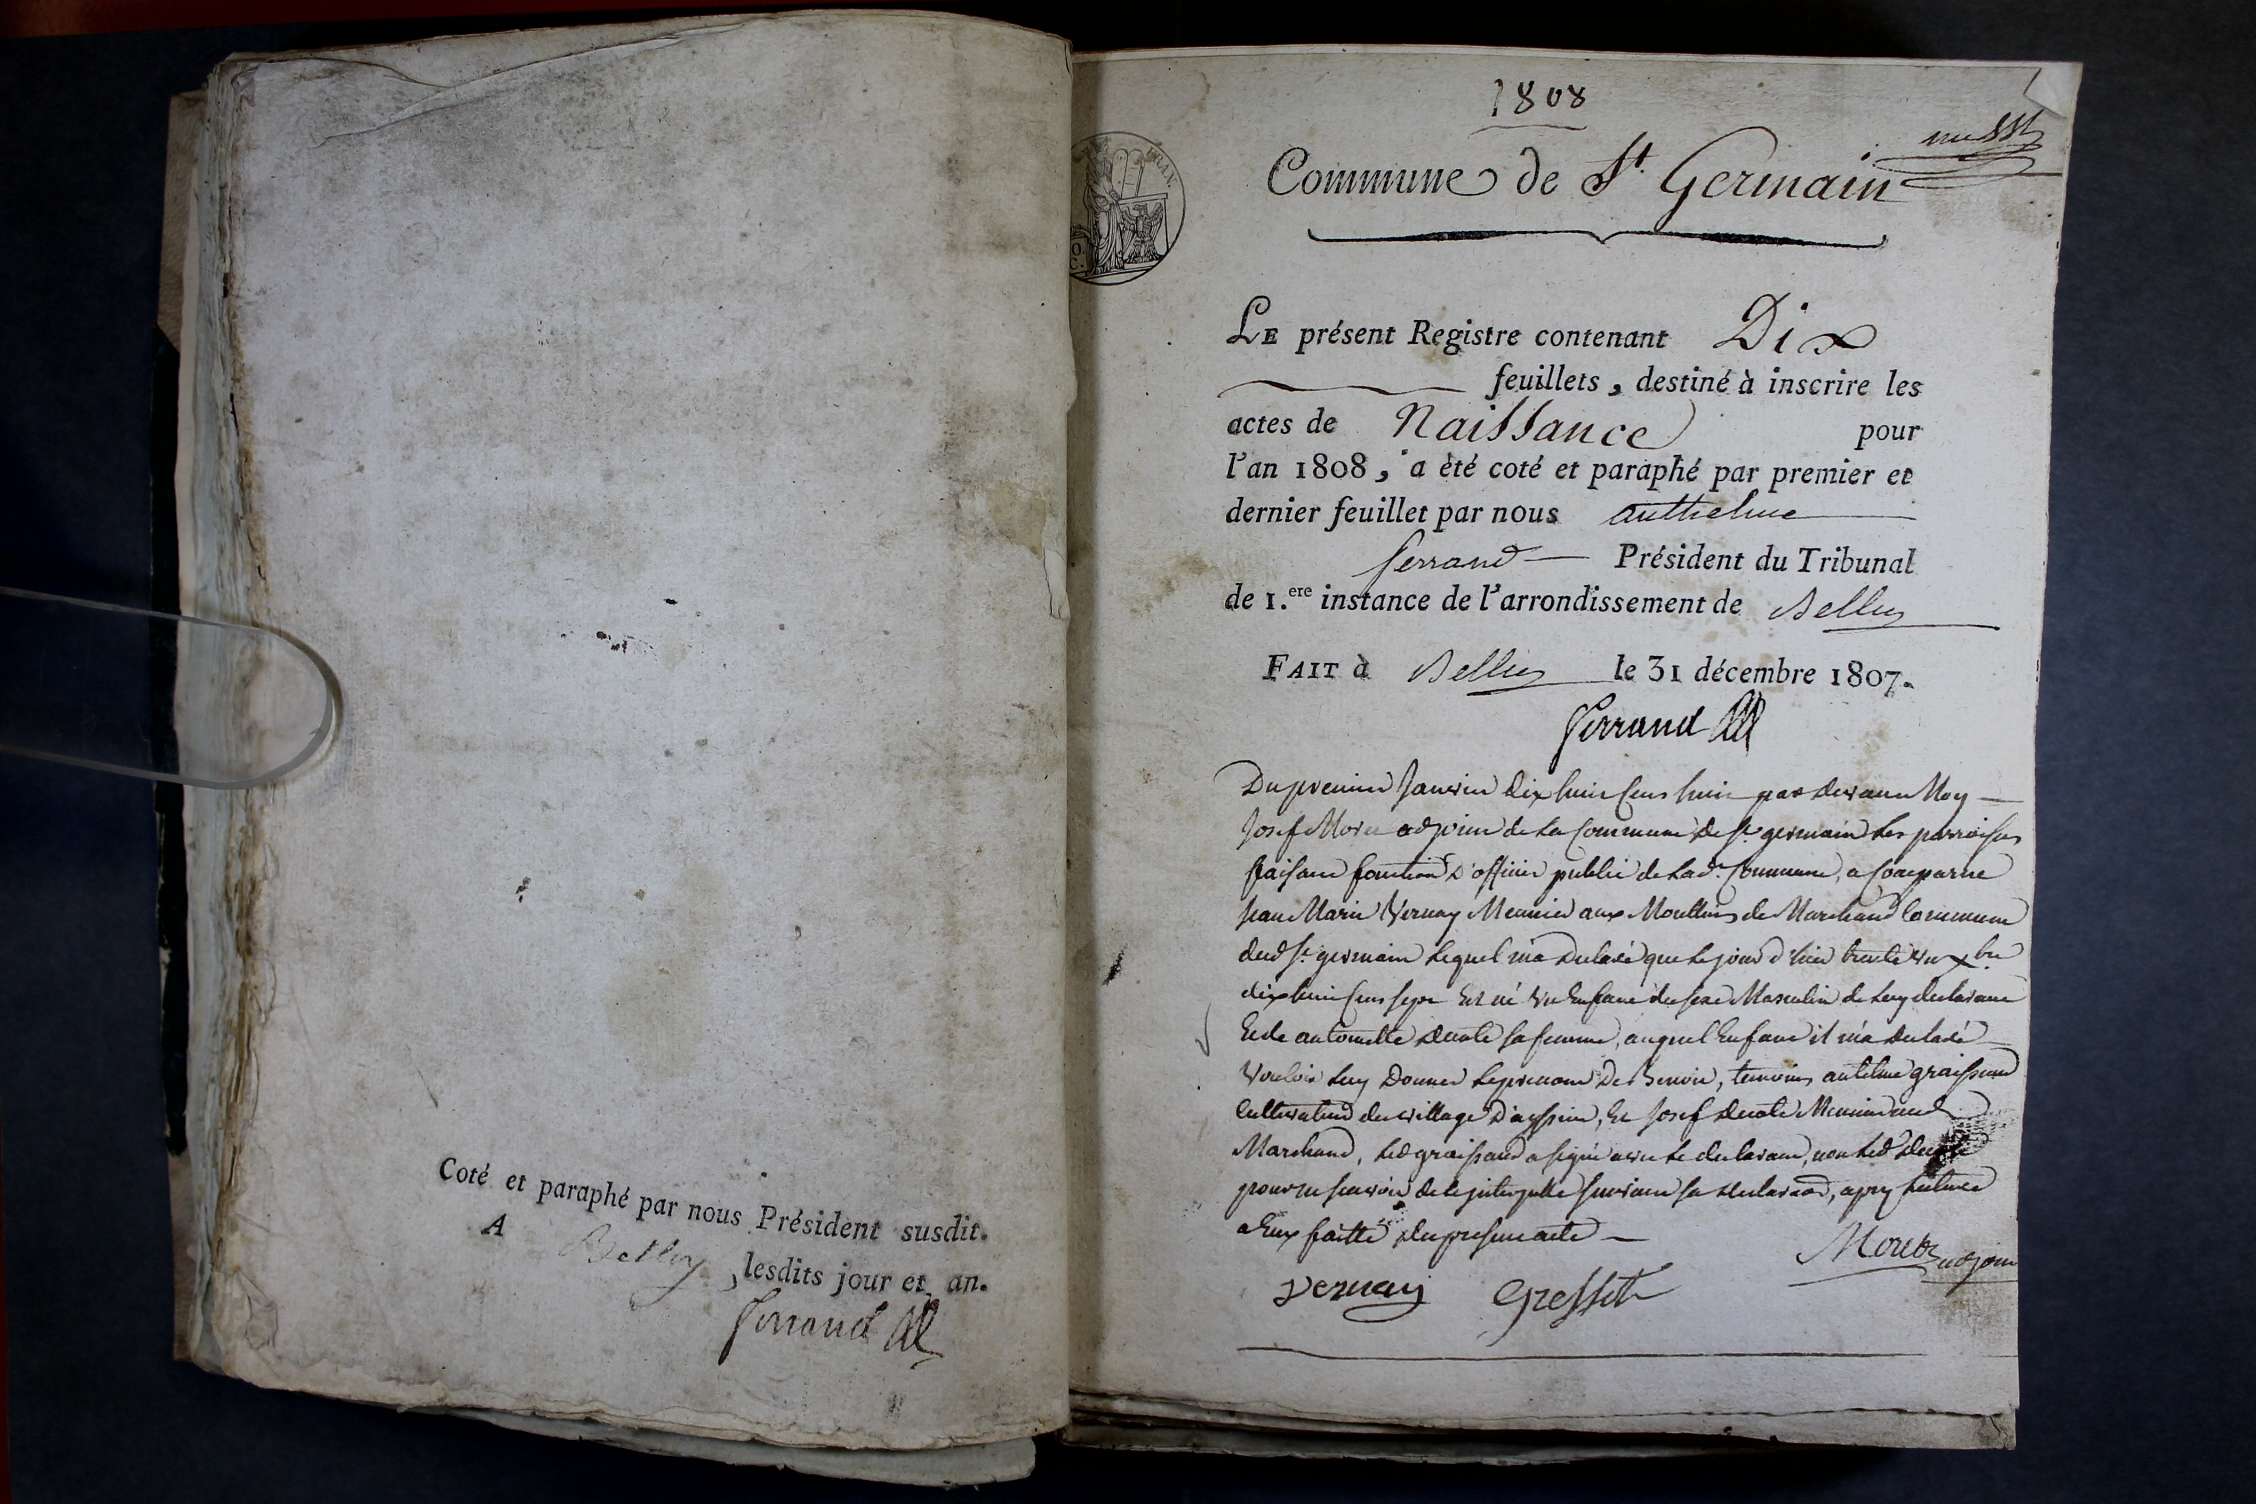 Coté et paraphé par nous Président susdit.
A Belley, lesdits jour et an.
Ferrand
1808
Commune de St. Germain
LE présent Registre contenant Dix
feuillets, destiné à inscrire les
actes de Naissance pour
l'an 1808, a été coté et paraphé par premier et
dernier feuillet par nous anthelme
ferrand Président du Tribunal
de 1.ere instance de l'arrondissement de Belley
FAIT à Belley le 31 décembre 1807.
Ferrand
Du premier Janvier dix huit cens huit par devant Moy
Josef Moret adjoint de la Commune de St. germain les parroisses
faisant fonction d'officier public de lad. Commune, a Comparue
jean Marie Vernay Meunier aux Moullins de Marchand Commune
dud St. germain lequel m'a declaré que le jour d'hier trente un xbre
dix huit cens sept Est né Un Enfant du sexe Masculin de luy declarant
Et de antoinette sa femme, auquel Enfant il m'a declaré
Vouloir luy Donner le prenom De Benoit, temoins antelme
Cultivateur du village, Et Josef Meunier aud
Marchand, led a signé avec le declarant, non led
pour ne scavoir de ce interpellé suivant sa declaration, apres lecture
a Eux faitte du present acte
Moret adjoint
Vernay